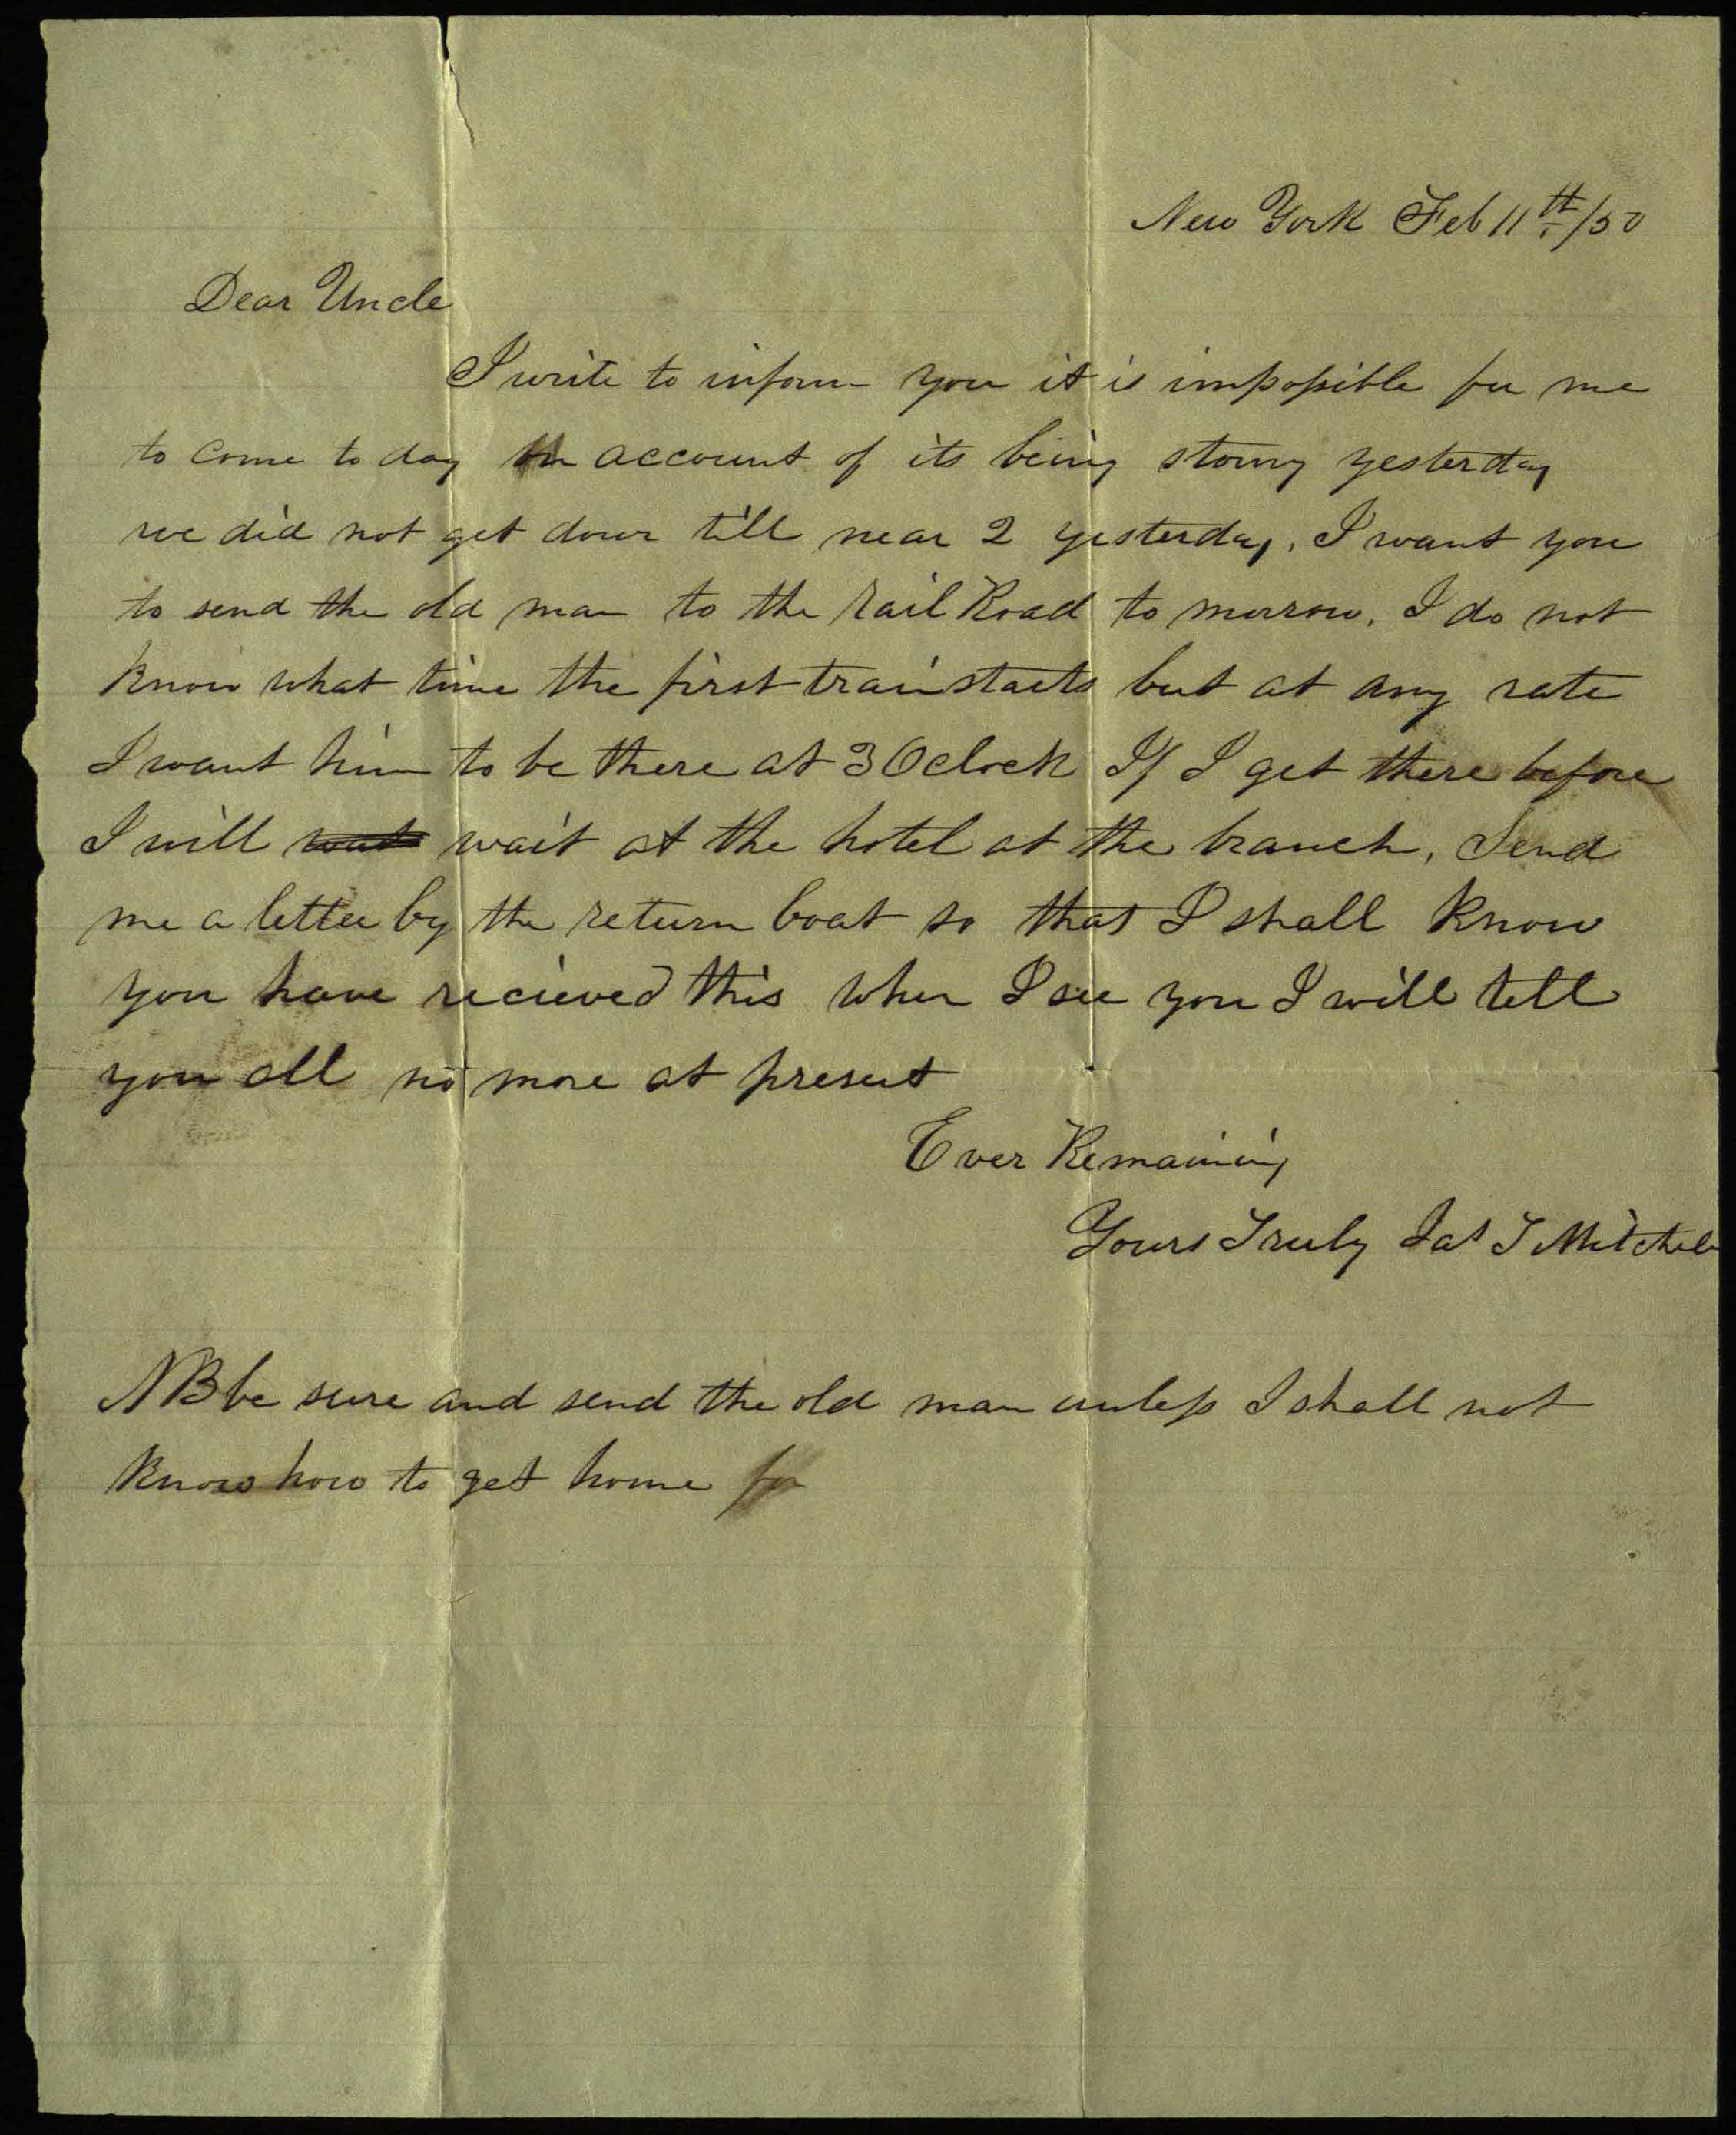 New York Feb 11th/50
Dear Uncle
I write to inform you it is impossible for me
to come to day on account of its being stormy yesterday
we did not get down till near 2 yesterday. I want you
to send the old man to the Rail Road to morrow. I do not
know what time the first train starts but at any rate
I want him to be there at 3 Oclock If I get there before
I will wait at the hotel at the branch. Send
me a letter by the return boat so that I shall know
you have recieved this when I see you I will tell
you all no more at present
Ever Remaining
Yours Truly Jas T Mitchell
NB be sure and send the old man unless I shall not
know how to get home